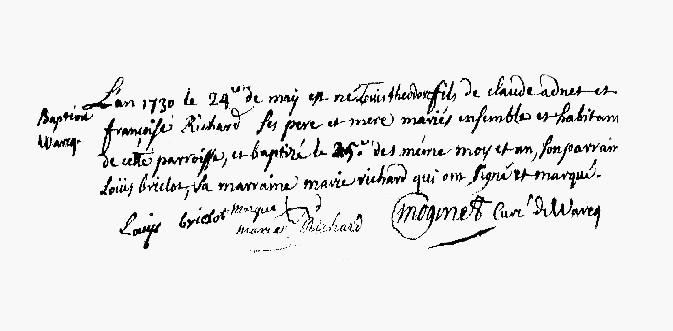 Baptiou
Warcq.
L'an 1730 le 24me de may est né Louis theodore fils de claude adnet et
françoise Richard ses pere et mere mariés ensemble et habitans
de cette parroisse, et baptizé le 25me des méme moy et an, son parrain
Loüis briclot, sa marraine marie richard qui ont signé et marqué.
Louijs briclot marque
marie Richard
moginet Curé de Warcq